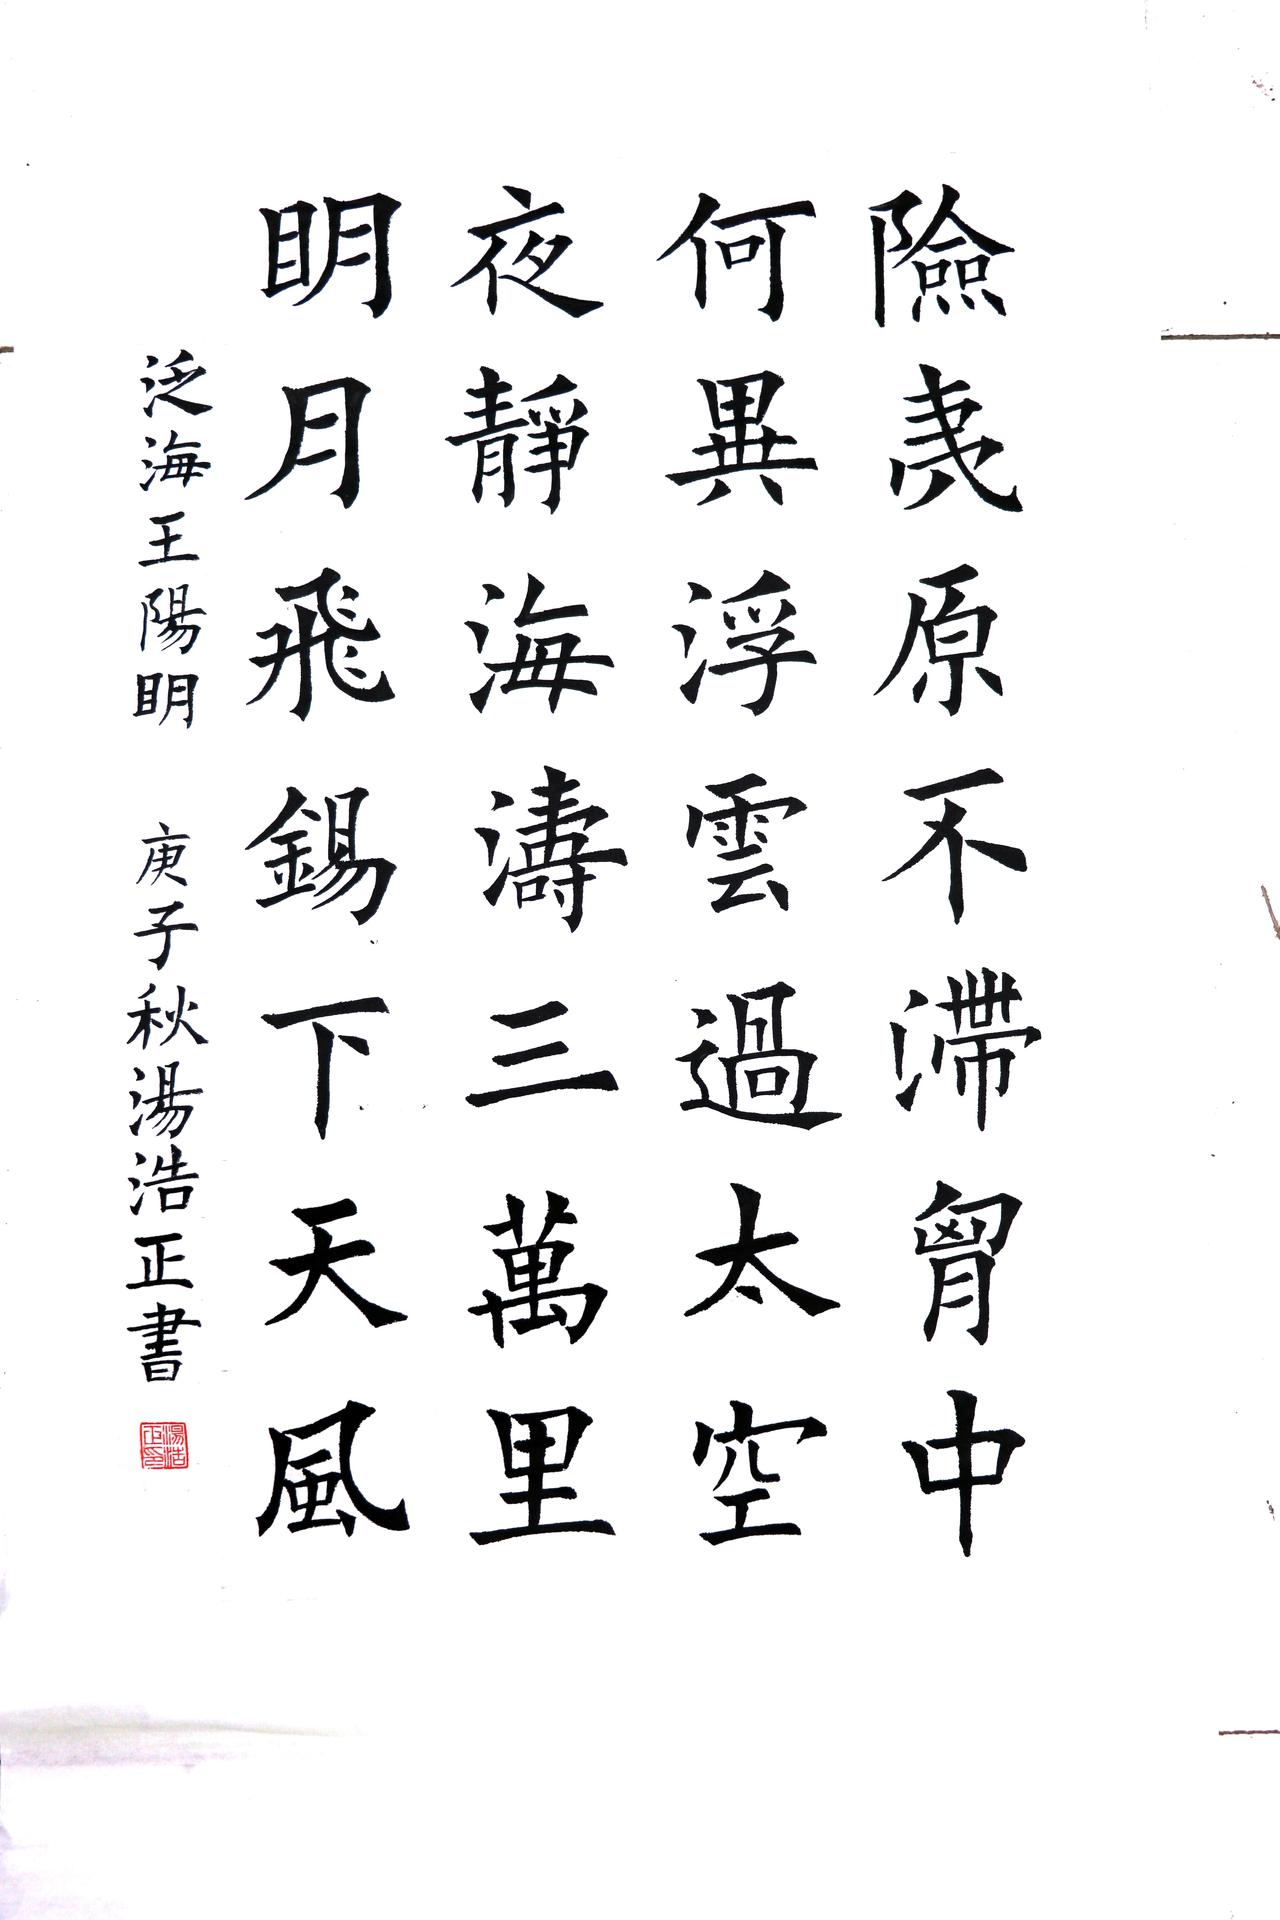 險夷原不滯胷中
何異浮雲過太空
夜靜海濤三萬里
明月飛錫下天風
泛海王陽明 庚子秋湯浩正書
湯浩正印